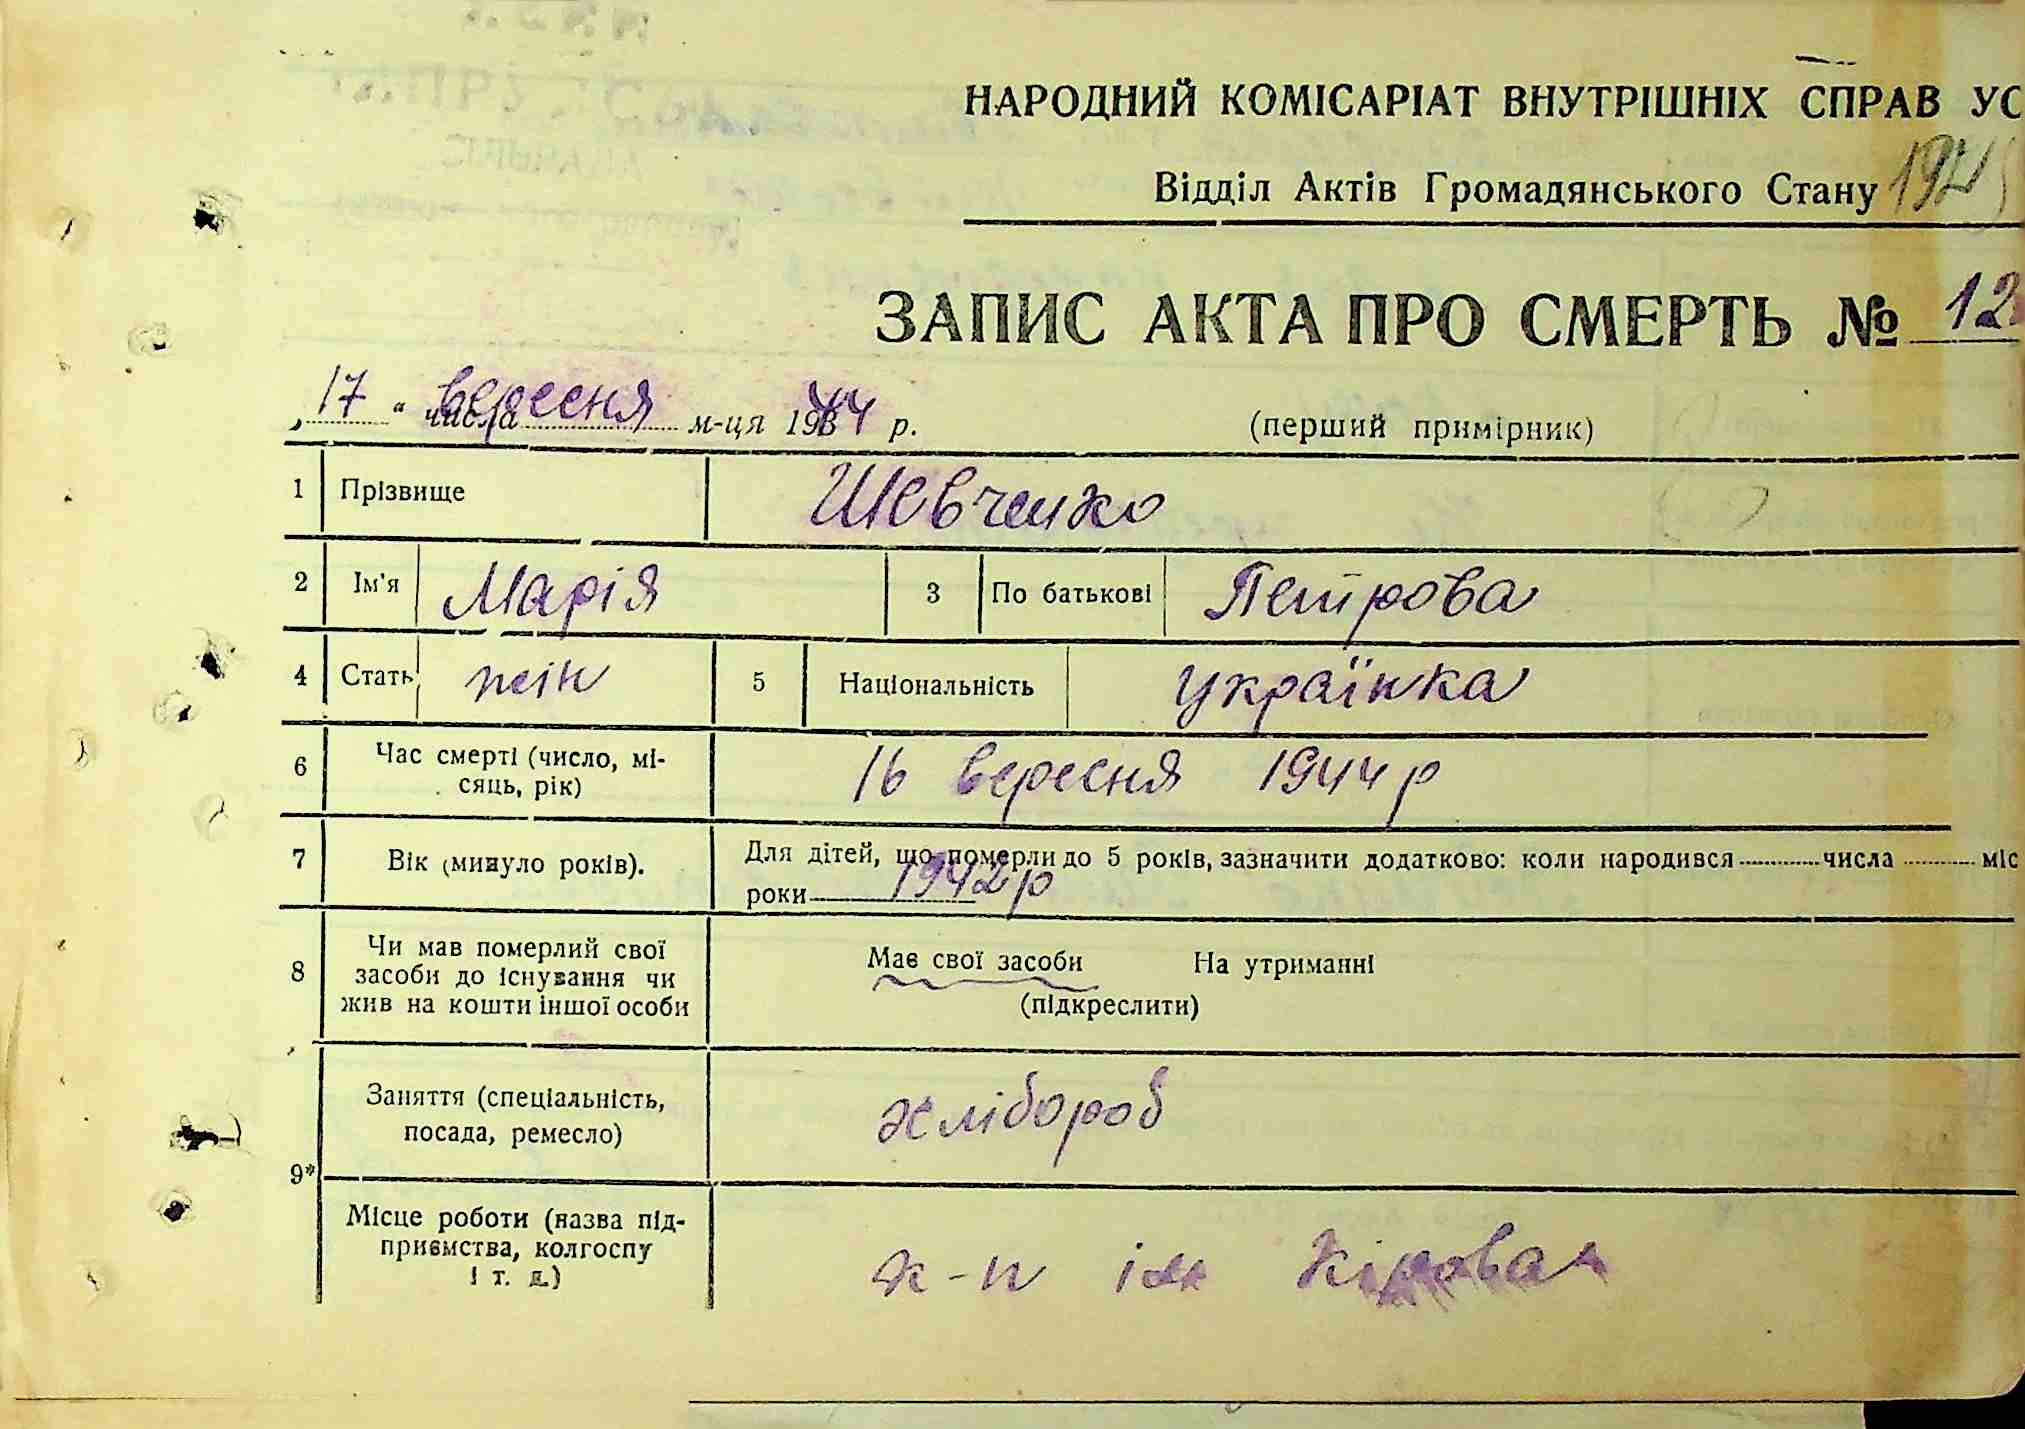 НАРОДНИЙ КОМІСАРІАТ ВНУТРІШНІХ СПРАВ УС
Відділ Актів Громадянського Стану
ЗАПИС АКТА ПРО СМЕРТЬ № 12
„17" числа вересня м-ця 1944 р. (перший примірник)
1 Прізвище Шевченко
2 Ім'я Марія 3 По батькові Петрова
4 Стать жін 5 Національність українка
6 Час смерті (число, мі-
сяць, рік) 16 вересня 1944 р
7 Вік (минуло років). Для дітей, що померли до 5 років, зазначити додатково: коли народився числа міс
роки 1942 р
8 Чи мав померлий свої
засоби до існування чи
жив на кошти іншої особи
Має свої засоби На утриманні
(підкреслити)
9* Заняття (спеціальність,
посада, ремесло) хлібороб
Місце роботи (назва під-
приємства, колгоспу
і т. д.) к-п ім Кірова